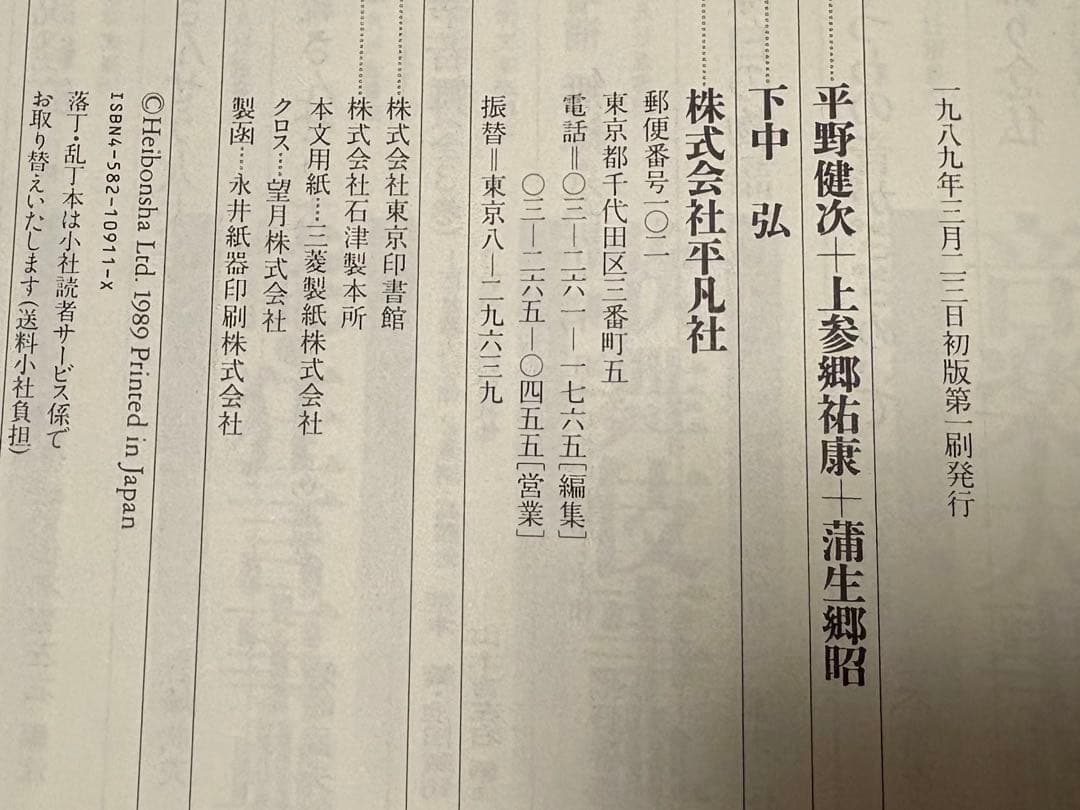 一九八九年三月二三日初版第一刷発行
平野健次＋上参郷祐康＋蒲生郷昭
下中 弘
株式会社平凡社
郵便番号一〇二
東京都千代田区三番町五
電話＝〇三―二六一―一七六五[編集]
〇三―二六五―〇四五五[営業]
振替＝東京八―二九六三九
株式会社東京印書館
株式会社石津製本所
本文用紙……三菱製紙株式会社
クロス……望月株式会社
製函……永井紙器印刷株式会社
©Heibonsha Ltd. 1989 Printed in Japan
ISBN4-582-10911-X
落丁・乱丁本は小社読者サービス係で
お取り替えいたします(送料小社負担)